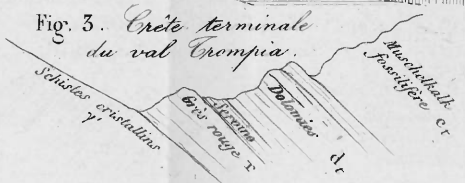 Fig. 3. Crête terminale
du val Trompia.
Schistes cristallins
γ'
Grès rouge r
Sereino
Dolomies
d r
Muschelkalk
fossilifère c r